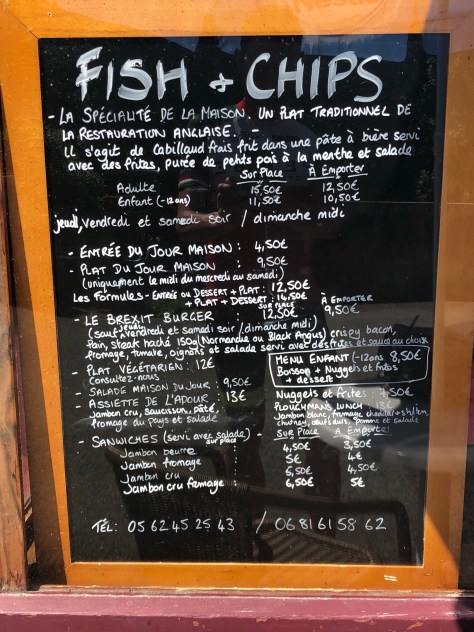 FISH + CHIPS
- LA SPÉCIALITÉ DE LA MAISON. UN PLAT TRADITIONNEL DE
LA RESTAURATION ANGLAISE. -
Il s'agit de Cabillaud frais frit dans une pâte à bière servi
avec des frites, purée de petits pois à la menthe et salade
Sur Place À Emporter
Adulte 15,50€ 12,50€
Enfant (-12ans) 11,50€ 10,50€
jeudi, vendredi et samedi soir / dimanche midi
- ENTRÉE DU JOUR MAISON : 4,50€
- PLAT DU JOUR MAISON : 9,50€
(uniquement le midi du mercredi au samedi)
Les Formules - Entrée ou Dessert + Plat : 12,50€
+ Plat + Dessert : 14,50€
sur place À EMPORTER
- LE BREXIT BURGER 12,50€ 9,50€
jeudi
(sauf vendredi et samedi soir / dimanche midi)
Pain, steak haché 150g (Normande ou Black Angus) crispy bacon,
fromage, tomate, oignons et salade servi avec des frites et sauce au choix
MENU ENFANT (-12ans 8,50€
Boisson + Nuggets et frites
+ dessert
- PLAT VÉGÉTARIEN : 12€
consultez-nous
- SALADE MAISON DU JOUR : 9,50€
- ASSIETTE DE L'ADOUR : 13€
Jambon cru, saucisson, pâté,
fromage du pays et salade
Nuggets et frites : 7,50€
PLOUGHMANS LUNCH 13€
Jambon blanc, fromage cheddar + stilton,
chutney, œufs durs, pomme et salade
- SANDWICHES (servi avec salade) -
sur place
Sur Place À Emporter
Jambon beurre : 4,50€ 3,50€
Jambon fromage : 5€ 4€
Jambon cru : 5,50€ 4,50€
Jambon cru fromage : 6,50€ 5€
TÉL: 05 62 45 25 43 / 06 81 61 58 62